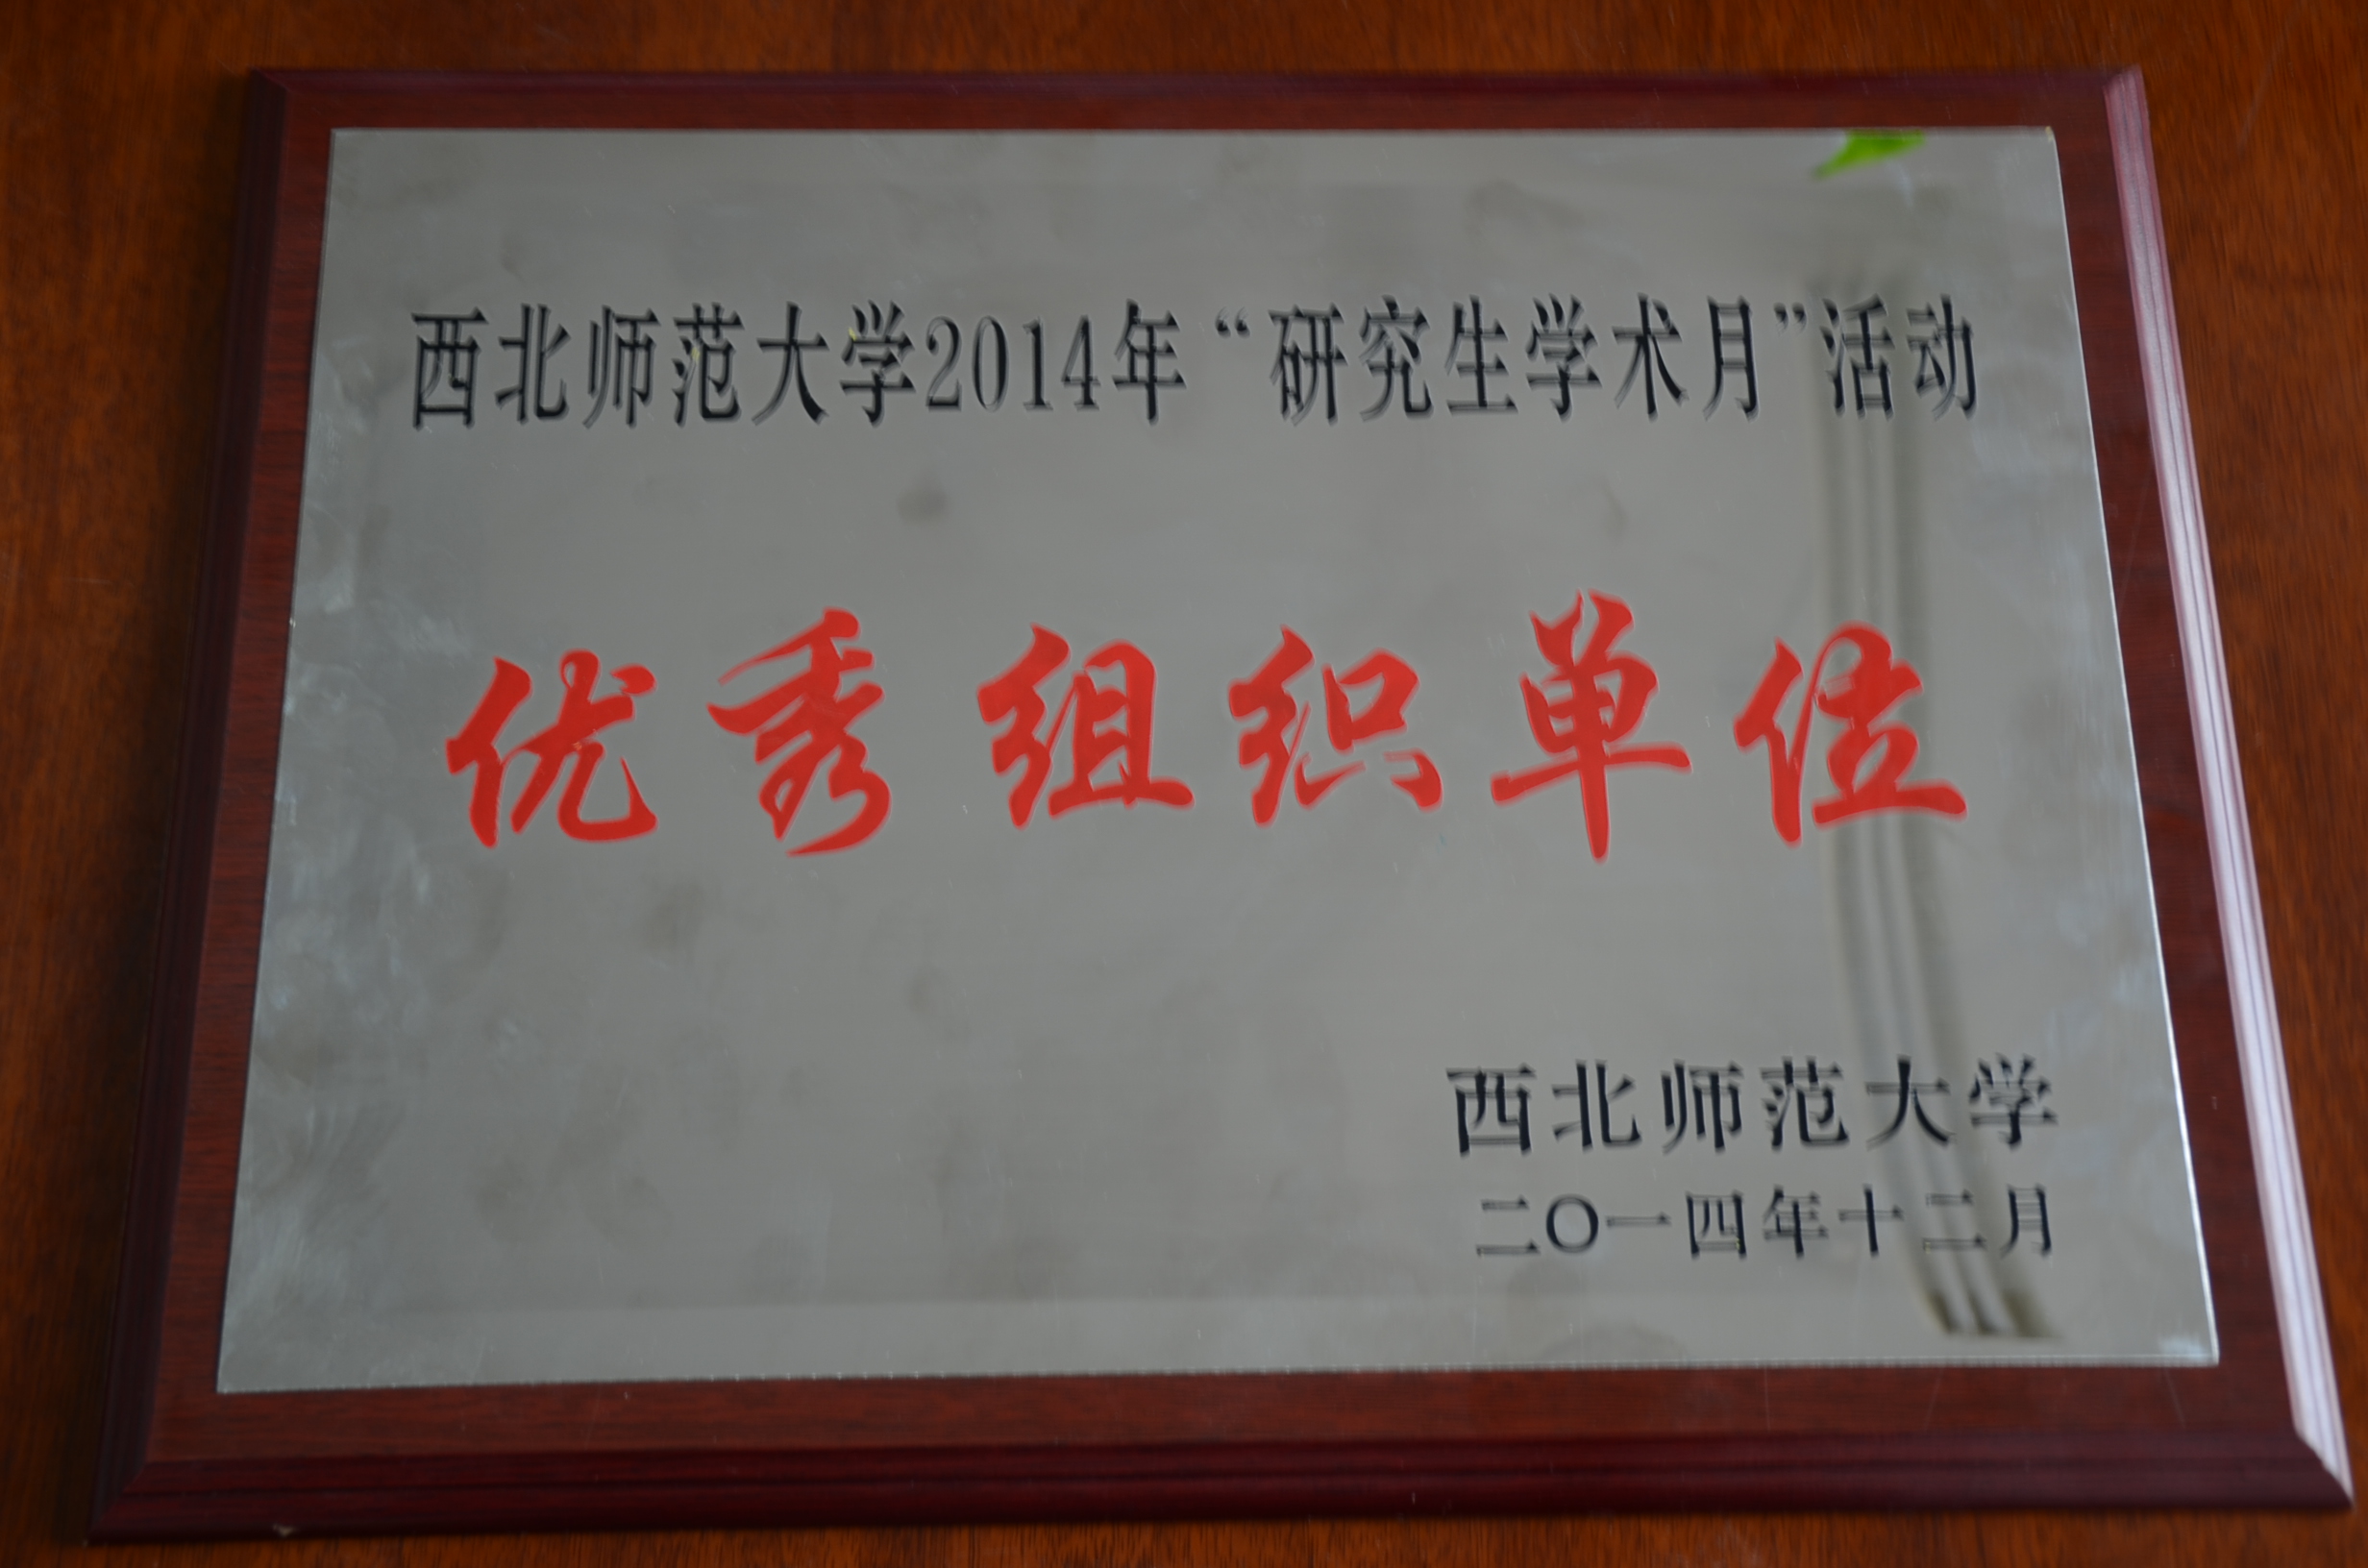 西北师范大学2014年“研究生学术月”活动
优秀组织单位
西北师范大学
二〇一四年十二月